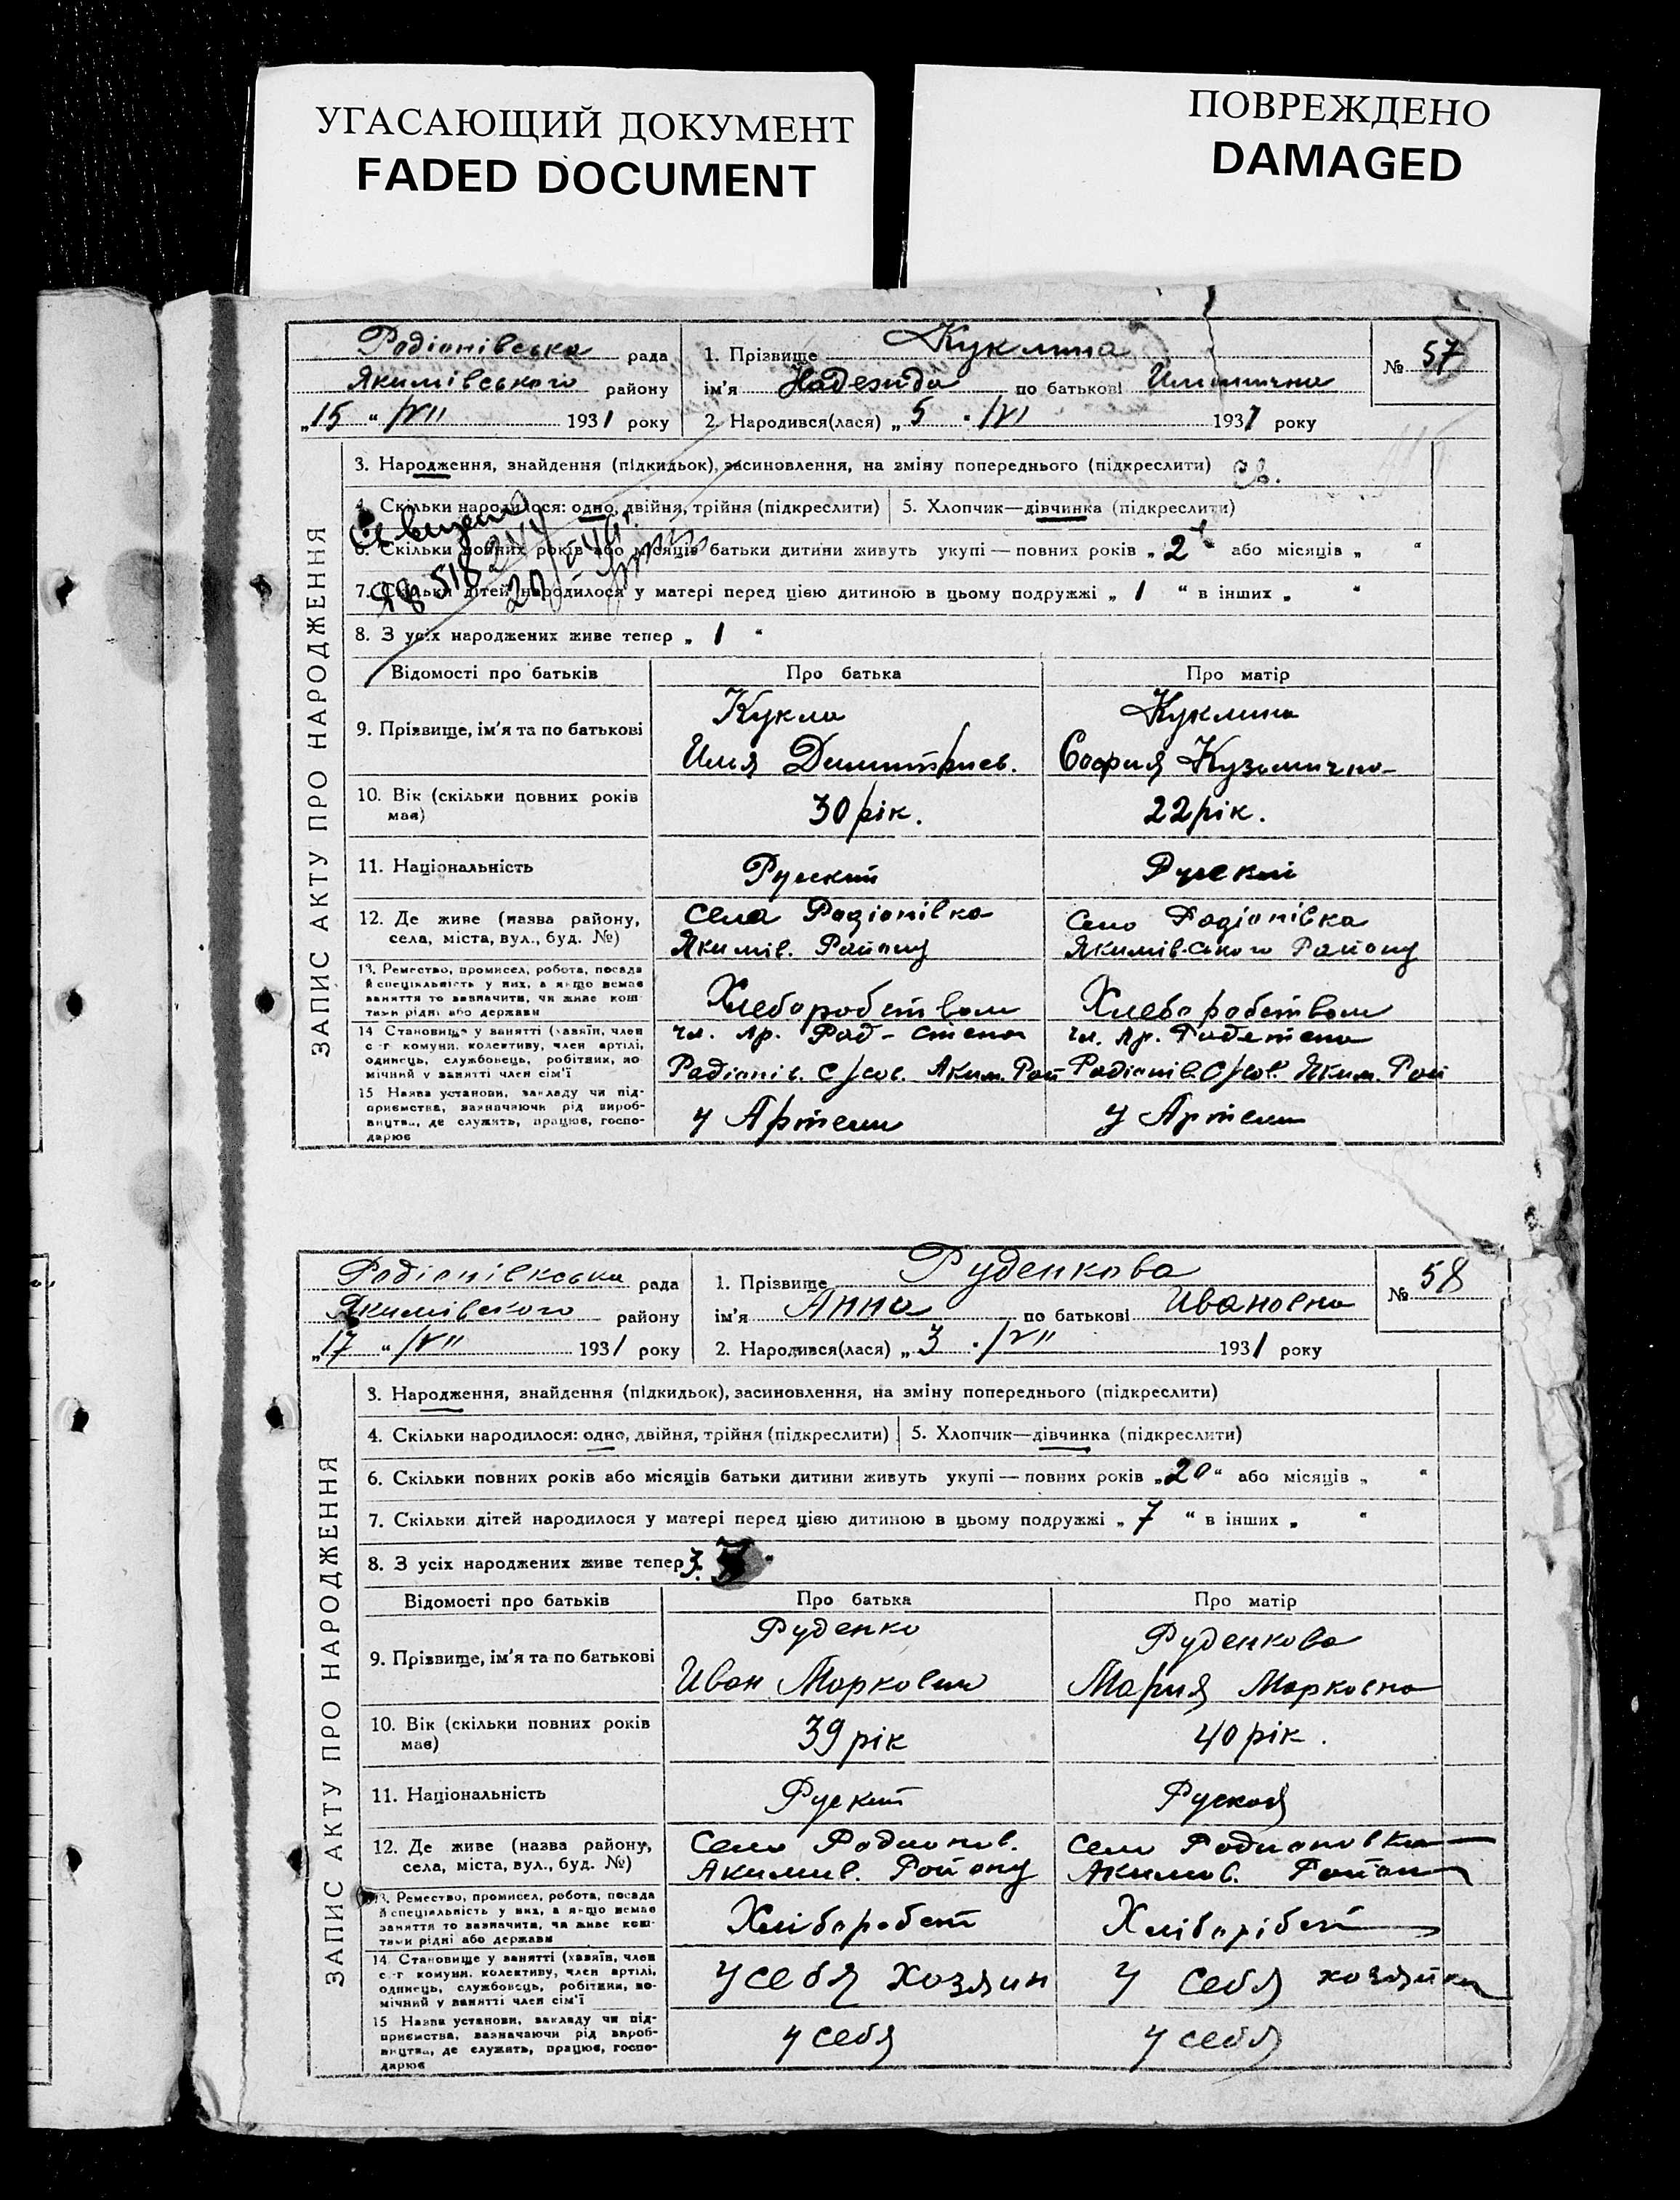 УГАСАЮЩИЙ ДОКУМЕНТ
FADED DOCUMENT
ПОВРЕЖДЕНО
DAMAGED
Родіонівська рада
Якимівського району
„15 “ /VII 1931 року
1. Прізвище Куклина
ім'я Надежда по батькові Илинична
2. Народився(лася) „ 5 “ /VI 1931 року
№ 57
ЗАПИС АКТУ ПРО НАРОДЖЕННЯ
3. Народження, знайдення (підкидьок), засиновлення, на зміну попереднього (підкреслити) св.
4. Скільки народилося: одно, двійня, трійня (підкреслити)
5. Хлопчик—дівчинка (підкреслити)
6. Скільки повних років або місяців батьки дитини живуть укупі — повних років „ 2 “ або місяців „ “
7. Скільки дітей народилося у матері перед цією дитиною в цьому подружжі „ 1 “ в інших „ “
8. З усіх народжених живе тепер „ 1 “
Відомості про батьків
Про батька
Про матір
9. Прізвище, ім'я та по батькові
Кукла
Илия Димитриев.
Куклина
София Кузьминична
10. Вік (скільки повних років має)
30 рік.
22 рік.
11. Національність
Руский
Руский
12. Де живе (назва району, села, міста, вул., буд. №)
села Родіонівка
Якимів. Району
Село Родіонівка
Якимівського Району
13. Ремество, промисел, робота, посада
й спеціяльність у них, а якщо немає
заняття то зазначити, чи живе кош-
тами рідні або держави
Хлеборобством
Хлеборобством
14 Становище у занятті (хазяїн, член
с.-г комуни, колективу, член артілі,
одинець, службовець, робітник, по-
мічний у занятті член сім'ї
чл. ар. Рад-степа
Радіонів. с/сов. Аким. Рай
чл. ар. Радстепа
Радіонів. С/сов. Яким. Рай
15 Назва установи, закладу чи під-
приємства, зазначаючи рід вироб-
ництва, де служить, працює, госпо-
дарює
у Артели
у Артели
Родіонівкська рада
Якимівского району
„17 “ /VII 1931 року
1. Прізвище Руденкова
ім'я Анна по батькові Ивановна
2. Народився(лася) „ 3 “ /VII 1931 року
№ 58
ЗАПИС АКТУ ПРО НАРОДЖЕННЯ
3. Народження, знайдення (підкидьок), засиновлення, на зміну попереднього (підкреслити)
4. Скільки народилося: одно, двійня, трійня (підкреслити)
5. Хлопчик—дівчинка (підкреслити)
6. Скільки повних років або місяців батьки дитини живуть укупі — повних років „ 20 “ або місяців „ “
7. Скільки дітей народилося у матері перед цією дитиною в цьому подружжі „ 7 “ в інших „ “
8. З усіх народжених живе тепер 3.
Відомості про батьків
Про батька
Про матір
9. Прізвище, ім'я та по батькові
Руденко
Иван Маркович
Руденкова
Мария Марковна
10. Вік (скільки повних років має)
39 рік
40 рік.
11. Національність
Руский
Руская
12. Де живе (назва району, села, міста, вул., буд. №)
Село Родионов.
Акимив. Району
село Родионовка
Акимов. Район
13. Ремество, промисел, робота, посада
й спеціяльність у них, а якщо немає
заняття то зазначити, чи живе кош-
тами рідні або держави
Хлібаробст
Хлібарібст
14 Становище у занятті (хазяїн, член
с.-г комуни, колективу, член артілі,
одинець, службовець, робітник, по-
мічний у занятті член сім'ї
у себя хозяин
у себя хозяйка
15 Назва установи, закладу чи під-
приємства, зазначаючи рід вироб-
ництва, де служить, працює, госпо-
дарює
у себя
у себя